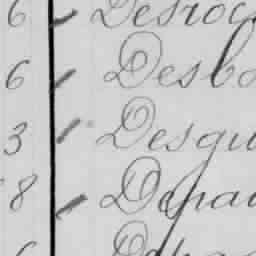 6 Desroc
6 Desbo
3 Desgu
8 Depau
6